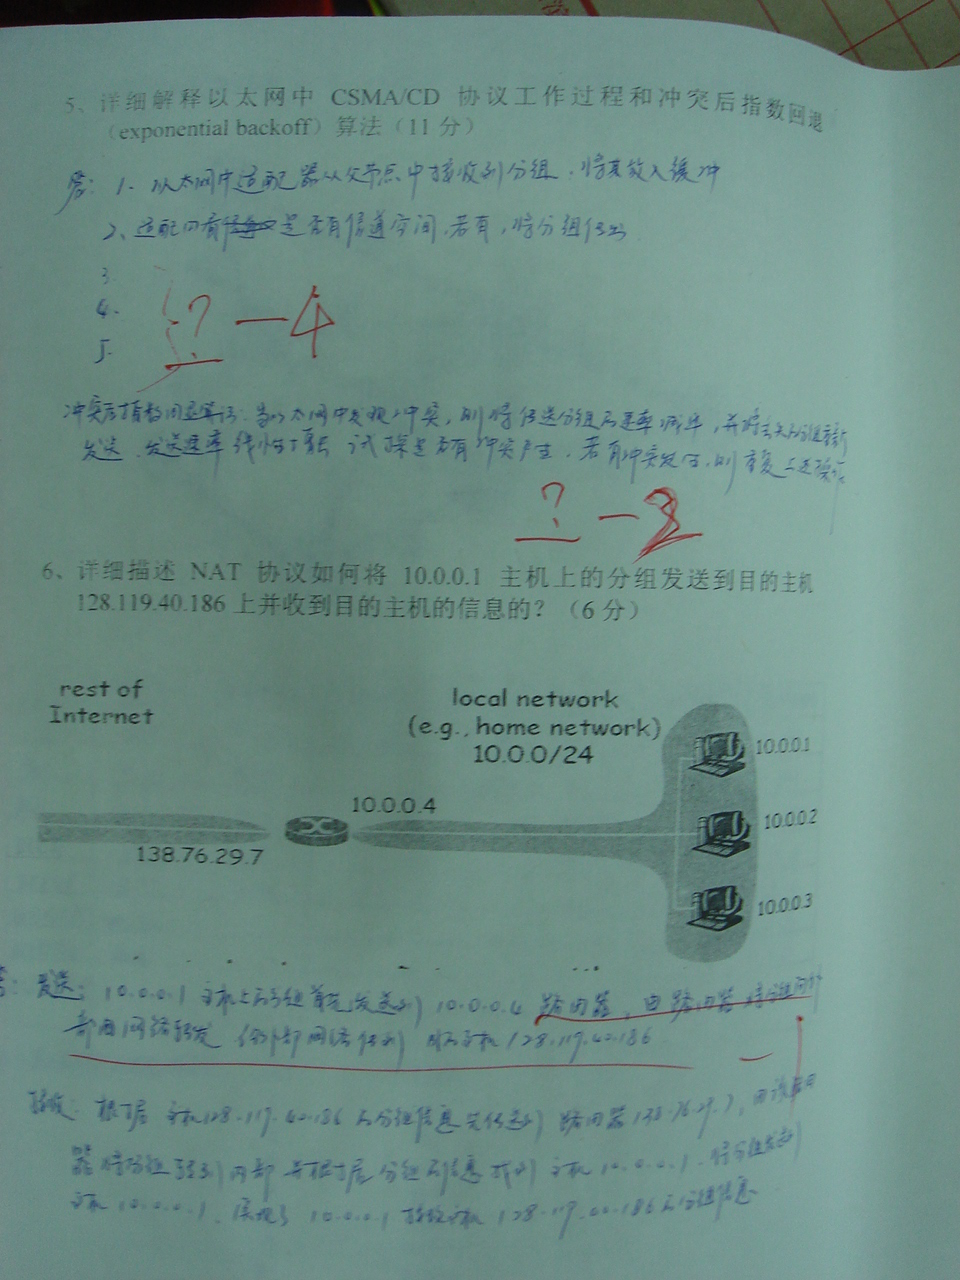 5、详细解释以太网中 CSMA/CD 协议工作过程和冲突后指数回退
（exponential backoff）算法（11 分）
答: 1. 以太网中适配器从父节点中接收到分组, 将其放入缓冲
2、适配 看 是否有信道空间, 若有, 将分组传出
3.
4.
5.
? —4
冲突后指数回退算法: 当以太网中发现冲突, 则将传送分组的速率减半, 并将 分组重新
发送, 发送速率线性增长 试探是否有冲突产生, 若有冲突发生, 则重复上述操作
? —2
6、详细描述 NAT 协议如何将 10.0.0.1 主机上的分组发送到目的主机
128.119.40.186 上并收到目的主机的信息的？（6 分）
rest of
Internet
local network
(e.g., home network)
10.0.0/24
10.0.0.1
10.0.0.4
10.0.0.2
138.76.29.7
10.0.0.3
答: 发送: 10.0.0.1 主机上的分组首先发送到 10.0.0.4 路由器, 由路由器将分组向外
部网络转发 传到 主机 128.119.40.186
—1
接收: 根据 主机128.119.40.186 的分组信息 传送到 路由器138.76.29.7, 由该路由
器将分组转到内部 并根据分组的信息找到主机 10.0.0.1, 将分组发到
主机 10.0.0.1, 实现了 10.0.0.1 接收主机 128.119.40.186的分组信息